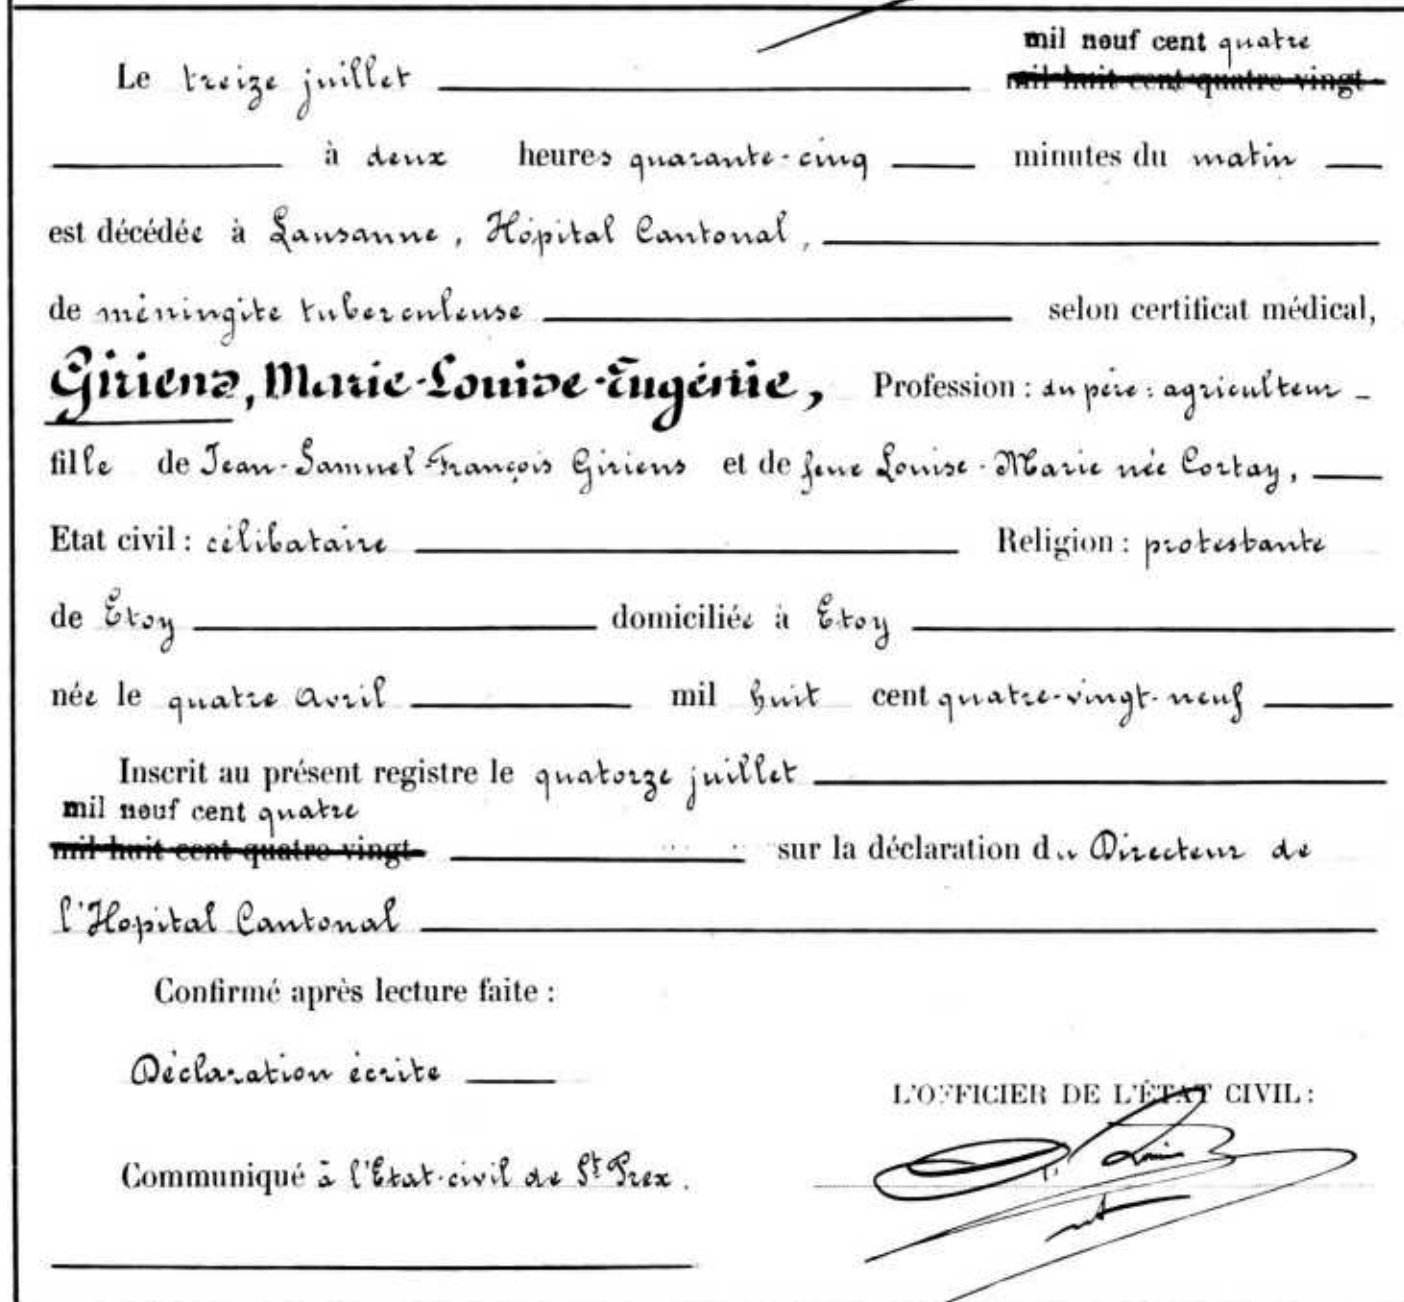 mil neuf cent quatre
Le treize juillet mil huit cent quatre-vingt-
à deux heures quarante-cinq minutes du matin
est décédée à Lausanne, Hôpital Cantonal,
de méningite tuberculeuse selon certificat médical,
Giriens, Marie-Louise-Eugénie, Profession : du père : agriculteur
fille de Jean-Samuel-François Giriens et de feue Louise-Marie née Cortay,
Etat civil : célibataire Religion : protestante
de Etoy domiciliée à Etoy
née le quatre Avril mil huit cent quatre-vingt-neuf
Inscrit au présent registre le quatorze juillet
mil neuf cent quatre
mil huit cent quatre-vingt- sur la déclaration du Directeur de
l'Hopital Cantonal
Confirmé après lecture faite :
Déclaration écrite
L'OFFICIER DE L'ÉTAT CIVIL :
Communiqué à l'Etat-civil de St Prex.